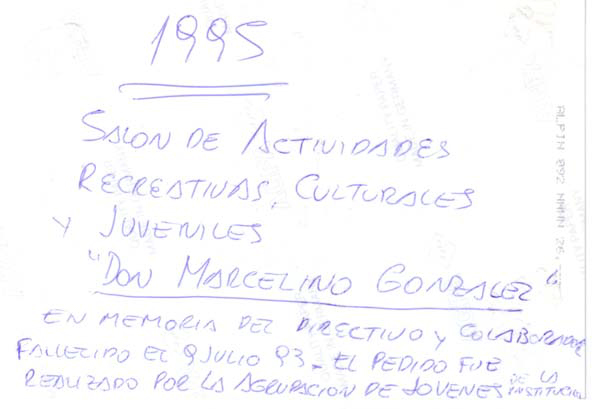 1995
SALON DE ACTIVIDADES
RECREATIVAS, CULTURALES
Y JUVENILES
"DON MARCELINO GONZALEZ"
EN MEMORIA DEL DIRECTIVO Y COLABORADOR
FALLECIDO EL 9 JULIO 93. EL PEDIDO FUE
REALIZADO POR LA AGRUPACION DE JOVENES DE LA INSTITUCION